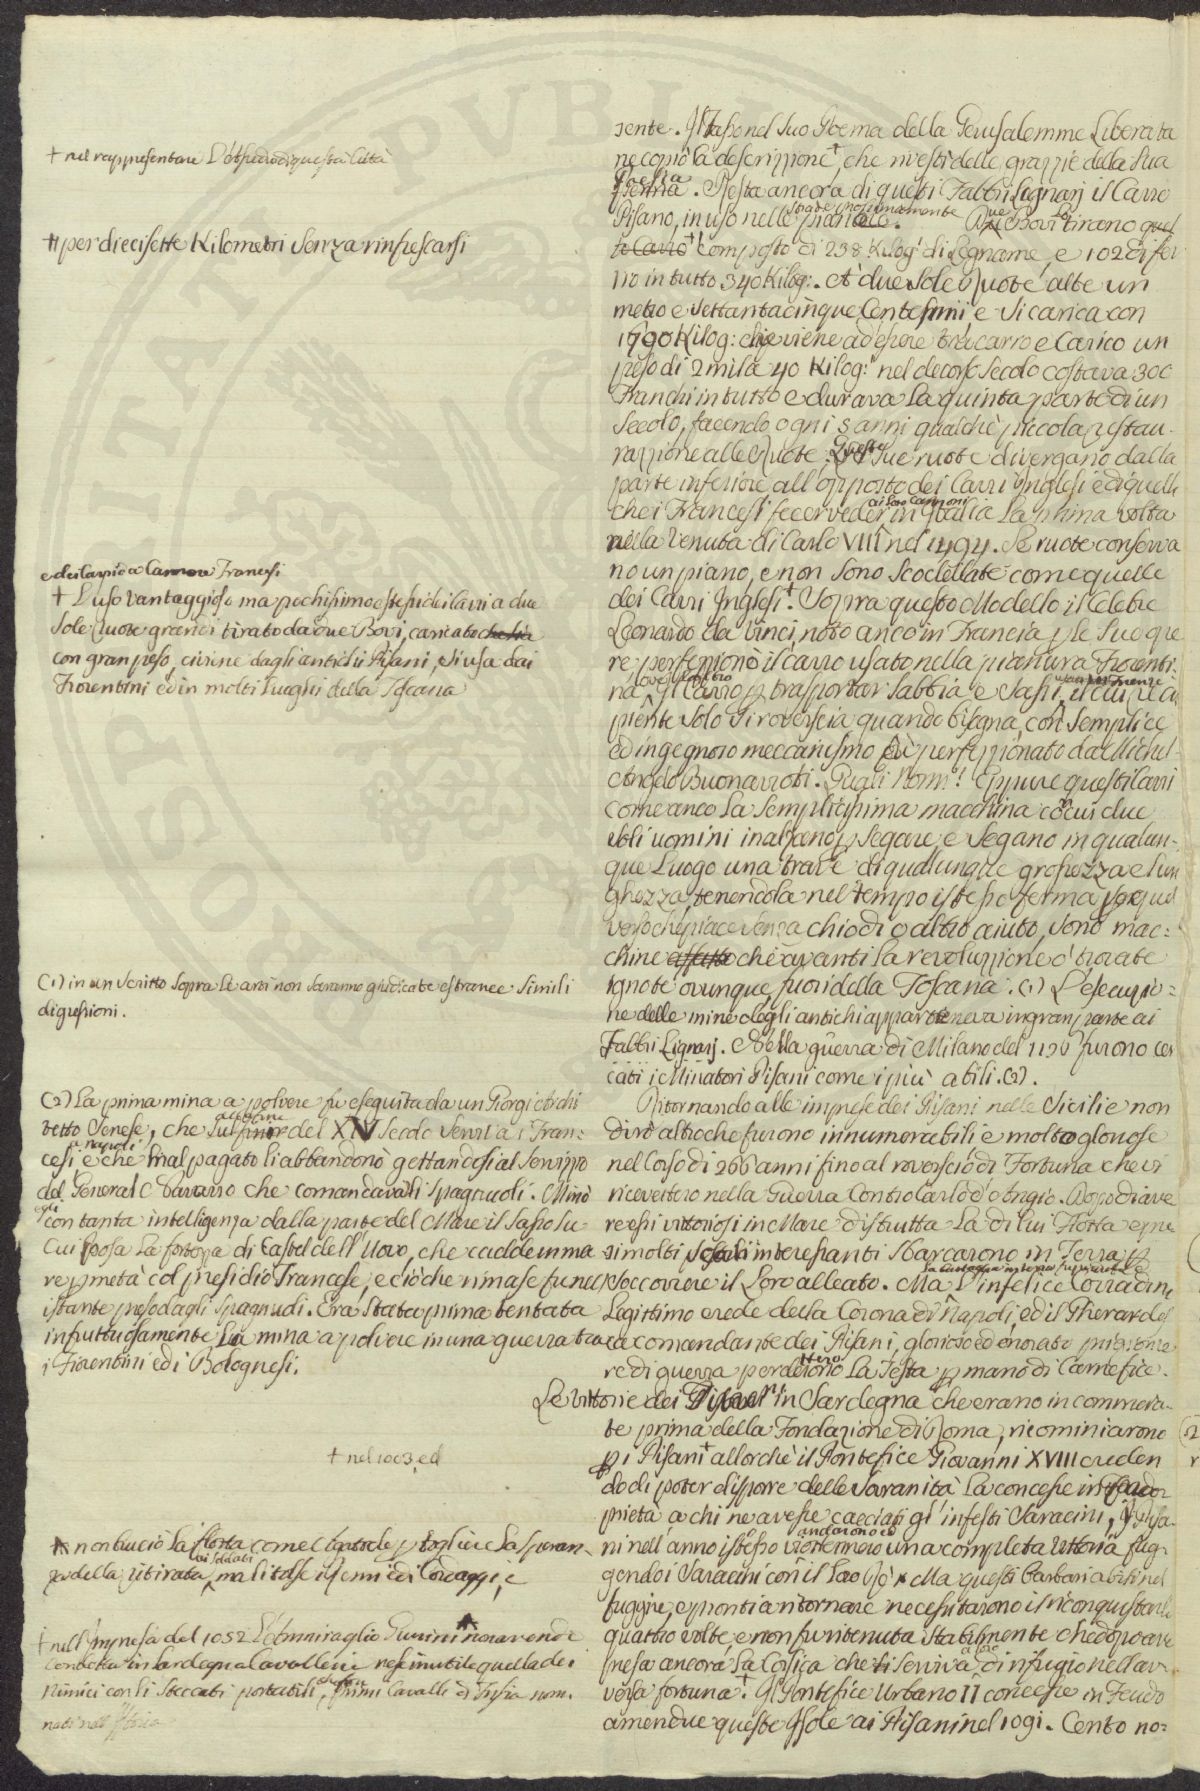 sente. Il Tasso nel suo Poema della Gerusalemme Liberata
ne copiò la descrizzione +, che rivestì delle grazzie della sua
Poesia. Resta ancora di questi Fabbri Lignarj il Carro
Pisano, in uso nelle strade
Bovi lo tirano
to Carro ++ composto di 238 Kilog: di Legname, e 102 di fer
ro in tutto 340 Kilog:. A due sole Ruote alte un
metro e settantacinque Centesimi, e si carica con
1700 Kilog: che viene ad essere tra carro e Carico un
peso di 2 mila 40 Kilog: nel decorso secolo costava 300
Franchi in tutto e durava la quinta parte di un
secolo, facendo ogni 5 anni qualche piccola restau-
razzione alle Ruote. Queste sue ruote divergano dalla
parte inferiore all'opposto dei Carri Inglesi e di quelli
che i Francesi fecer veder ai loro Cannoni in Italia la prima volta
nella venuta di Carlo VIII nel 1494. Le ruote conserva
no un piano, e non sono scodellate come quelle
dei Carri Inglesi +. Sopra questo Modello il Celebre
Leonardo da Vinci, noto anco in Francia p le sue ope
re perfezzionò il carro usato nella pianura Fiorenti:
na, Il Carro p trasportar sabbia e sassi, il cui reci
piente solo si rovescia quando bisogna, con semplice
ed ingegnoso meccanismo fù perfezzionato da Michel-
Angelo Buonarroti. Quali Nomi! Eppure questi Carri
come anco la semplicissima macchina con cui due
soli uomini inalzano p segare, e segano in qualun-
que Luogo una trave di qualunque grossezza e lun
ghezza, tenendola nel tempo istesso ferma
verso che piace senza chiodi o altro aiuto, sono mac=
chine affatto che avanti la revoluzzione o trovate
ignote ovunque fuori della Toscana. (1) L'esecuzio=
ne delle mine degli antichi apparteneva in gran parte ai
Fabbri Lignarj. Nella guerra di Milano del furono cer
cati i Minatori Pisani come i più abili. (2).
Ritornando alle imprese dei Pisani nelle Sicilie non
dirò altro che furono innumerabili e molto gloriose
nel corso di 266 anni fino al rovescio di Fortuna che vi
ricevettero nella Guerra contro Carlo d'Angiò. Dopo d'ave
re essi vittoriosi in Mare distrutta la di lui Flotta e pre
si molti interessanti sbarcarono in Terra p
soccorrere il loro alleato. Ma l'infelice Corradino
Legittimo erede della Corona di Napoli, ed il Gherardes
ca comandante dei Pisani, glorioso ed onorato prigionie
re di guerra perdettero la Testa p mano di Carnefice.
Le vittorie dei Pisani in Sardegna che erano incomincia-
te prima della Fondazione di Roma, ricominciarono
p i Pisani + allorchè il Pontefice Giovanni XVIII creden
do di poter disporre delle Sovranità la concesse in
prietà a chi ne avesse cacciati gl'infesti Saracini, I Pisa-
ni nell'anno istesso andarono ed ottennero una completa Vittoria fug-
gendo i Saracini con il loro Rè. Ma questi Barbari abili nel
fuggire, e pronti a ritornare necessitarono il riconquistarla
quattro volte, e non fu ritenuta stabilmente che dopo aver
presa ancora la Corsica che serviva a loro di rifugio nell'av-
versa fortuna +. Il Pontefice Urbano II concesse in Feudo
amendue queste Isole ai Pisani nel 1091. Cento no=
+ nel rappresentare l'assedio di questa Città
++ per diecisette Kilometri senza rinfrescarsi
Francesi
+ L'uso vantaggioso ma pochissimo esteso dei Carri a due
sole Ruote grandi tirato da due Bovi, caricato che sia
con gran peso, ci viene dagli antichi Pisani, si usa dai
Fiorentini ed in molti Luoghi della Toscana
(1) in un scritto sopra le arti non saranno giudicate estranee simili
digressioni.
(2) La prima mina a polvere fu eseguita da un Giorgi Archi
tetto Senese, che sul finir del XIV secolo servì a i Fran=
cesi a napoli e che mal pagato li abbandonò gettandosi al servizzio
del General C Navarro che comandava li Spagnuoli. Minò
egli con tanta intelligenza dalla parte del Mare il sasso su
cui posa la fortezza di Castel dell'Uovo, che cadde in ma
re p metà col presidio Francese, e ciò che rimase fu nell
istante preso dagli Spagnuoli. Era stata prima tentata
infruttuosamente la mina a polvere in una guerra tra
i Fiorentini ed i Bolognesi.
+ nel 1003, ed
non bruciò la flotta come Agatocle p togliere la speran-
za della ritirata ai soldati,
+ nell'Impresa del 1052 L'Ammiraglio
condotta in Sardegna Cavalleria rese inutile quella dei
nimici con li steccati portatili, primi Cavalli di Frisia nom.
nati nell'Istoria